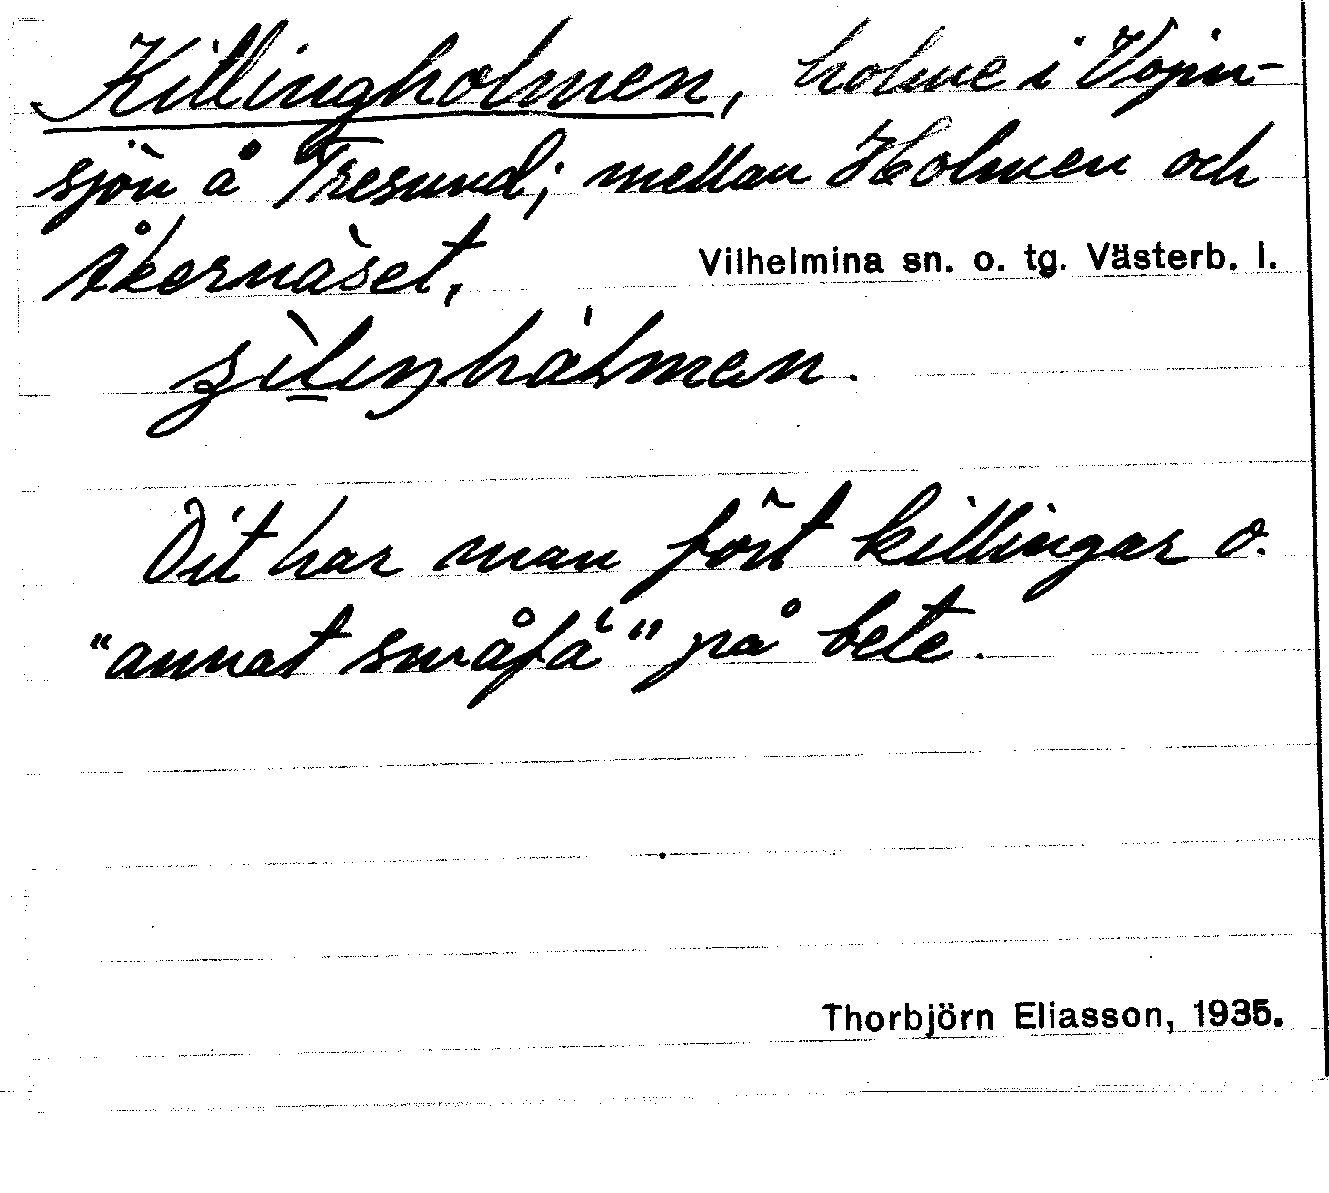 Killingholmen, holme i Vojm-
sjön å Tresund; mellan Holmen och
Åkernäset,
Vilhelmina sn. o. tg. Västerb. l.
Dit har man fört killingar o.
"annat småfä" på bete.
Thorbjörn Eliasson, 1935.